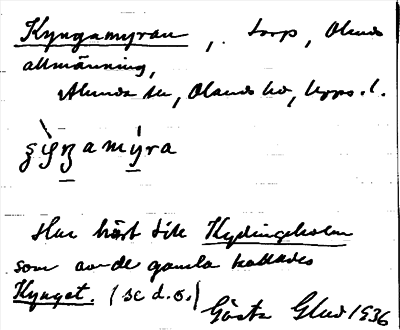 Kyngamyran, torp, Olands
allmänning,
Alunda sn, Olands hd, Upps. l.
ʂỳŋamýra
Har hört till Kydingeholm
som av de gamla kallades
Kynget. (se d. o.)
Gösta Glud 1936